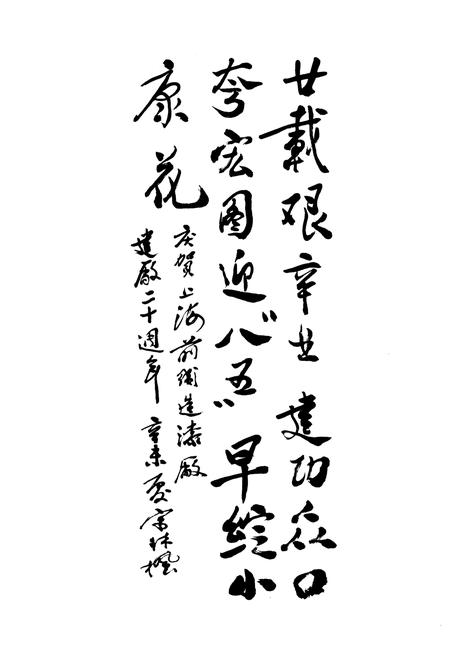 廿載艰辛业建功众口
夸宏图迎“八五”早綻小
康花
庆贺上海前衛造漆厰
建厰二十週年 辛未夏宋林楓